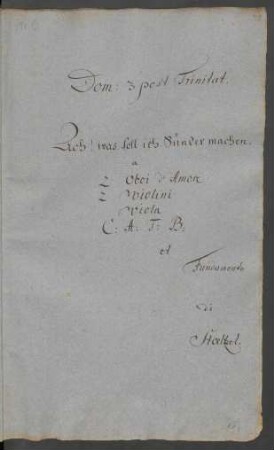 Dom: 3 post Trinitat.
Ach! was soll ich Sünder machen.
a
2 Oboi d'Amor.
2 Violini
Viola
C: A: T: B.
et
Fundamento
di
Stoeltzel.